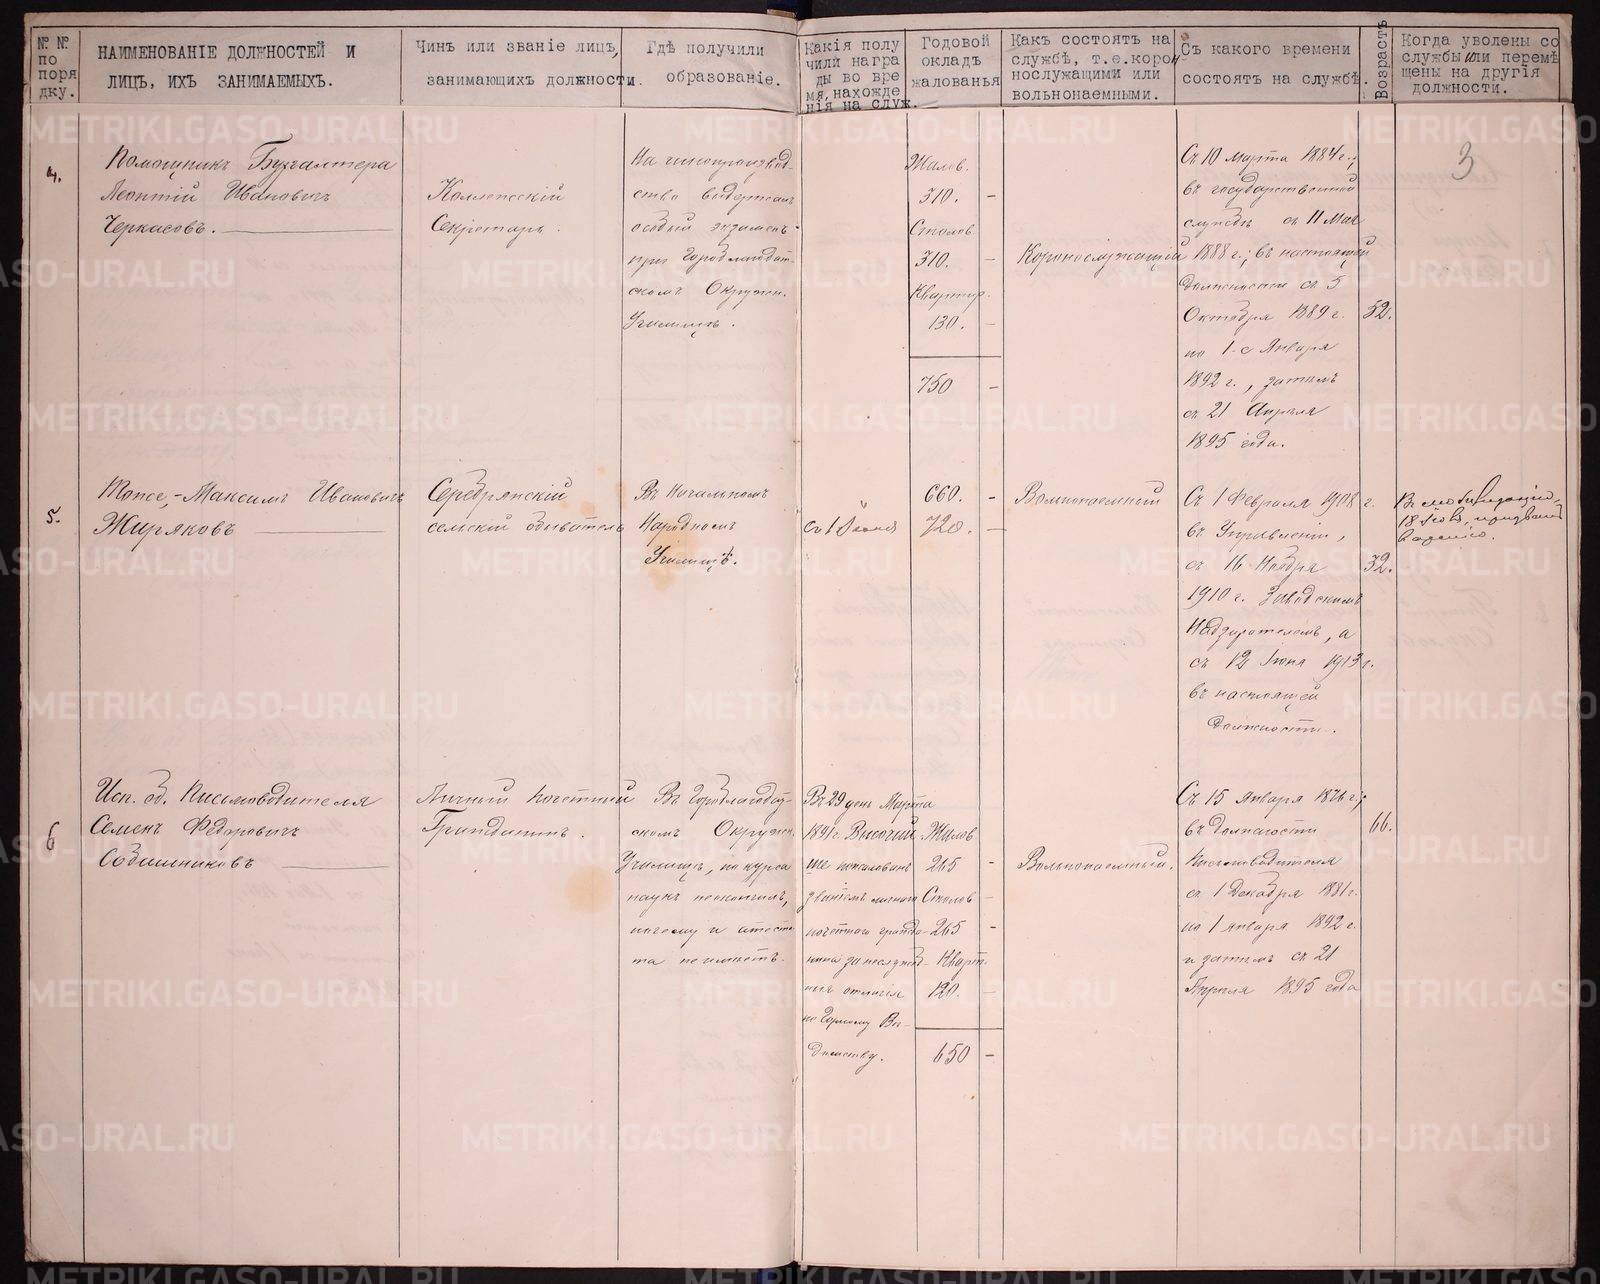 № №
по
поря
дку.
НАИМЕНОВАНІЕ ДОЛЖНОСТЕЙ И
ЛИЦЪ, ИХЪ ЗАНИМАЕМЫХЪ.
Чинъ или званіе лицъ,
занимающихъ должности.
Гдѣ получили
образованіе.
Какія полу
чили награ
ды во вре
мя, нахожде
нія на служ.
Годовой
окладъ
жалованья
Какъ состоятъ на
службѣ, т.е. корон
нослужащими или
вольнонаемными.
Съ какого времени
состоятъ на службѣ.
Возрастъ
Когда уволены со
службы или перемѣ
щены на другія
должности.
3
4.
Помощникъ Бухгалтера
Леонтій Ивановичъ
Черкасовъ.
Коллежскій
Секретарь.
На чинопроизвод-
ство выдержалъ
особый экзаменъ
при Горблагодат-
скомъ Окружн.
Училищѣ.
Жалов.
310. -
Столов.
310. -
Квартир.
130. -
750 -
Короннослужащій
Съ 10 марта 1884 г.;
въ государственной
службѣ съ 11 Мая
1888 г.; въ настоящей
должности съ 5
Октября 1889 г.
по 1-е Января
1892 г., затѣмъ
съ 21 Апрѣля
1895 года.
52.
5.
Тоже,-Максимъ Ивановичъ
Жиряковъ
Серебрянскій
сельскій обыватель
Въ Начальномъ
Народномъ
Училищѣ.
660. -
съ 1 Іюня
720. -
Вольнонаемный
Съ 1 Февраля 1908 г.
въ Управленіи,
съ 16 Ноября
1910 г. Заводскимъ
Надзирателемъ, а
съ 12 Іюня 1913 г.
въ настоящей
должности.
32.
В мобилизацію,
18 Іюля, призванъ
6
Исп. об. Письмоводителя
Семенъ Федоровичъ
Собашниковъ
Личный Почетный
Гражданинъ.
Въ Горблагодат-
скомъ Окружн.
Училищѣ, но курса
наукъ неокончилъ,
почему и аттеста
та неимѣетъ.
Въ 29 день Марта
1891 г. Высочай
ше пожалованъ
званіемъ личного
почетного гражда-
нина за неслужеб-
ныя отличія
по Горному Вѣ-
домству.
Жалов
265 -
Столов -
265 -
Кварт.
120. -
650 -
Вольнонаемный.
Съ 15 января 1876 г.;
въ должности
Письмоводителя
съ 1 Декабря 1881 г.
по 1 января 1892 г.
и затѣмъ съ 21
Апрѣля 1895 года
66.
METRIKI.GASO-URAL.RU